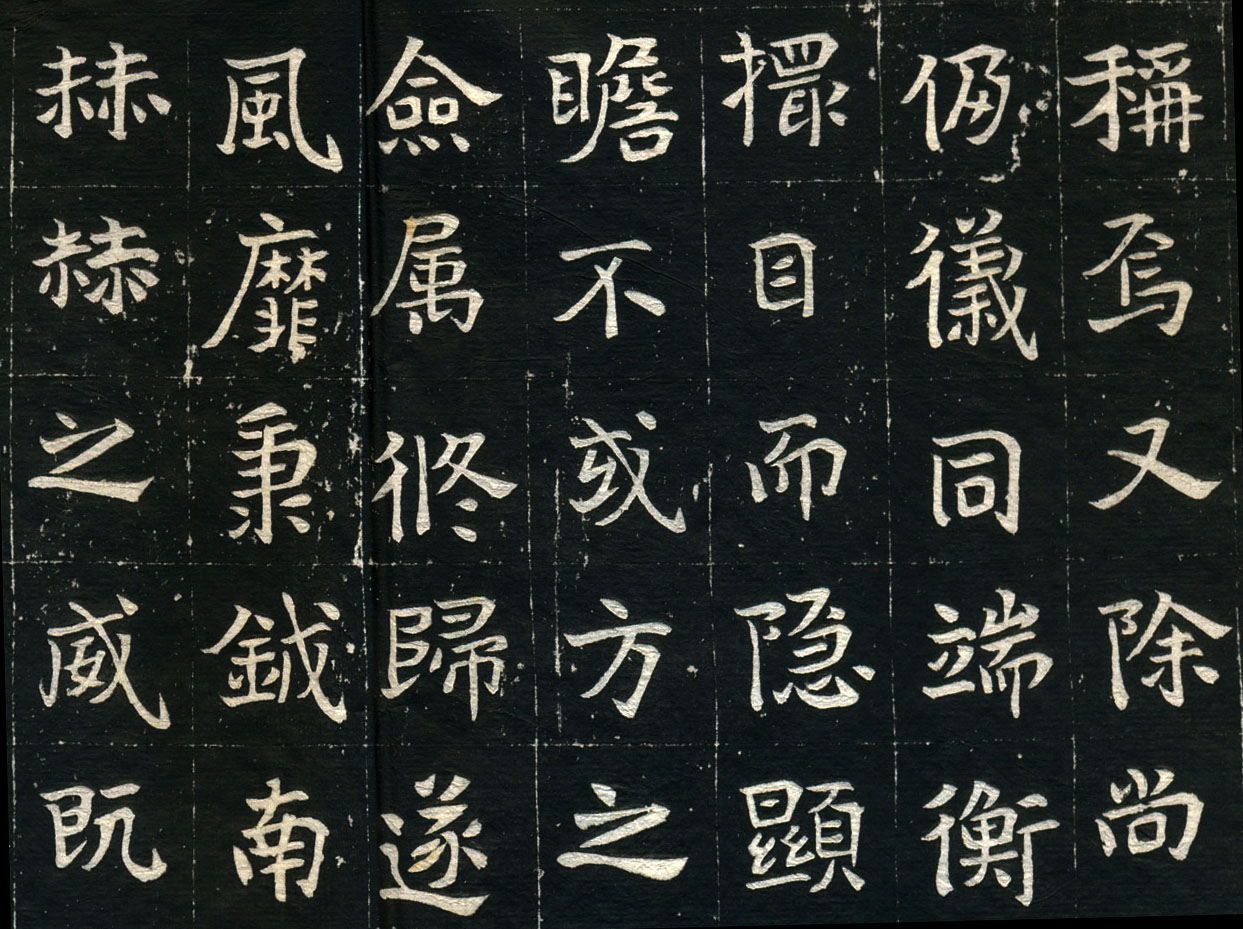 稱焉又除尚
儀同端衡
撮目而隱顯
瞻不或方之
僉属脩歸遂
風靡秉鉞南
赫赫之威既